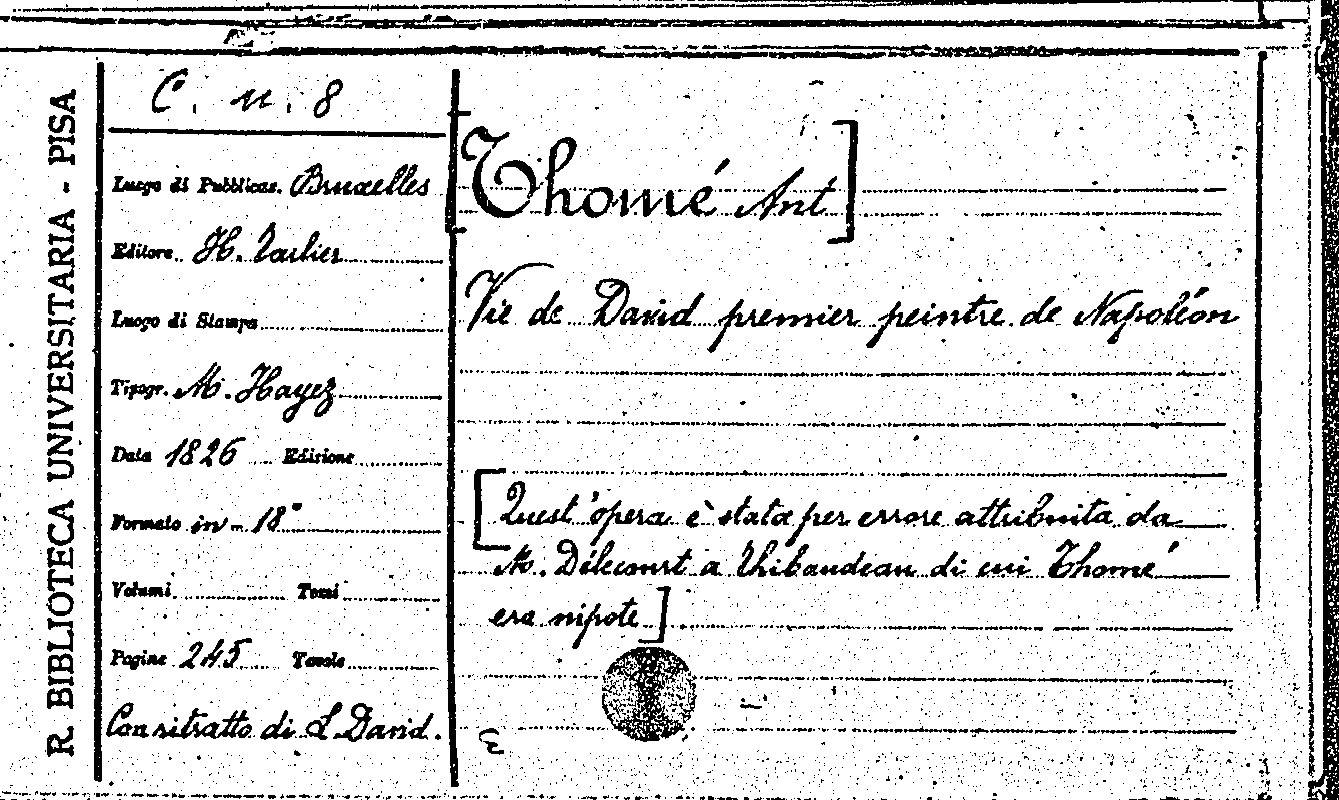 R. BIBLIOTECA UNIVERSITARIA - PISA
C. n. 8
Luogo di Pubblicaz. Bruxelles
Editore H. Tarlier
Luogo di Stampa
Tipogr. M. Hayez
Data 1826 Edizione
Formato in-18°
Volumi Tomi
Pagine 245 Tavole
Con ritratto di L David.
[Thomé Ant]
Vie de David premier peintre de Napoléon
[Quest'opera è stata per errore attribuita da
M. Délecourt a Thibaudeau di cui Thomé
era nipote]